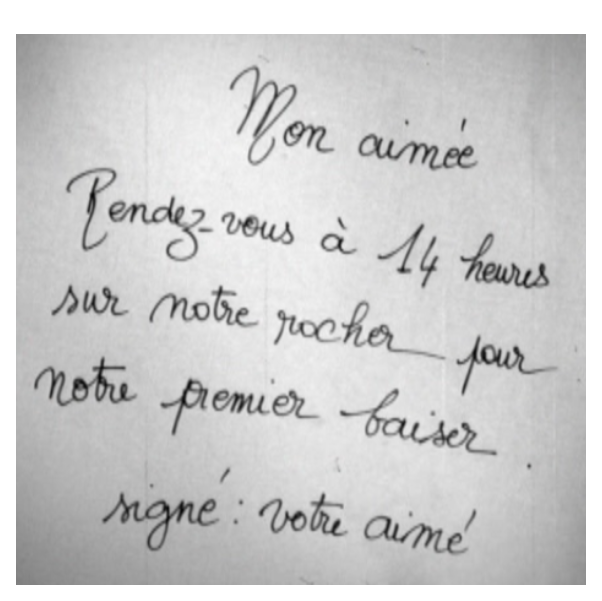 Mon aimée
Rendez-vous à 14 heures
sur notre rocher pour
notre premier baiser.
signé : votre aimé